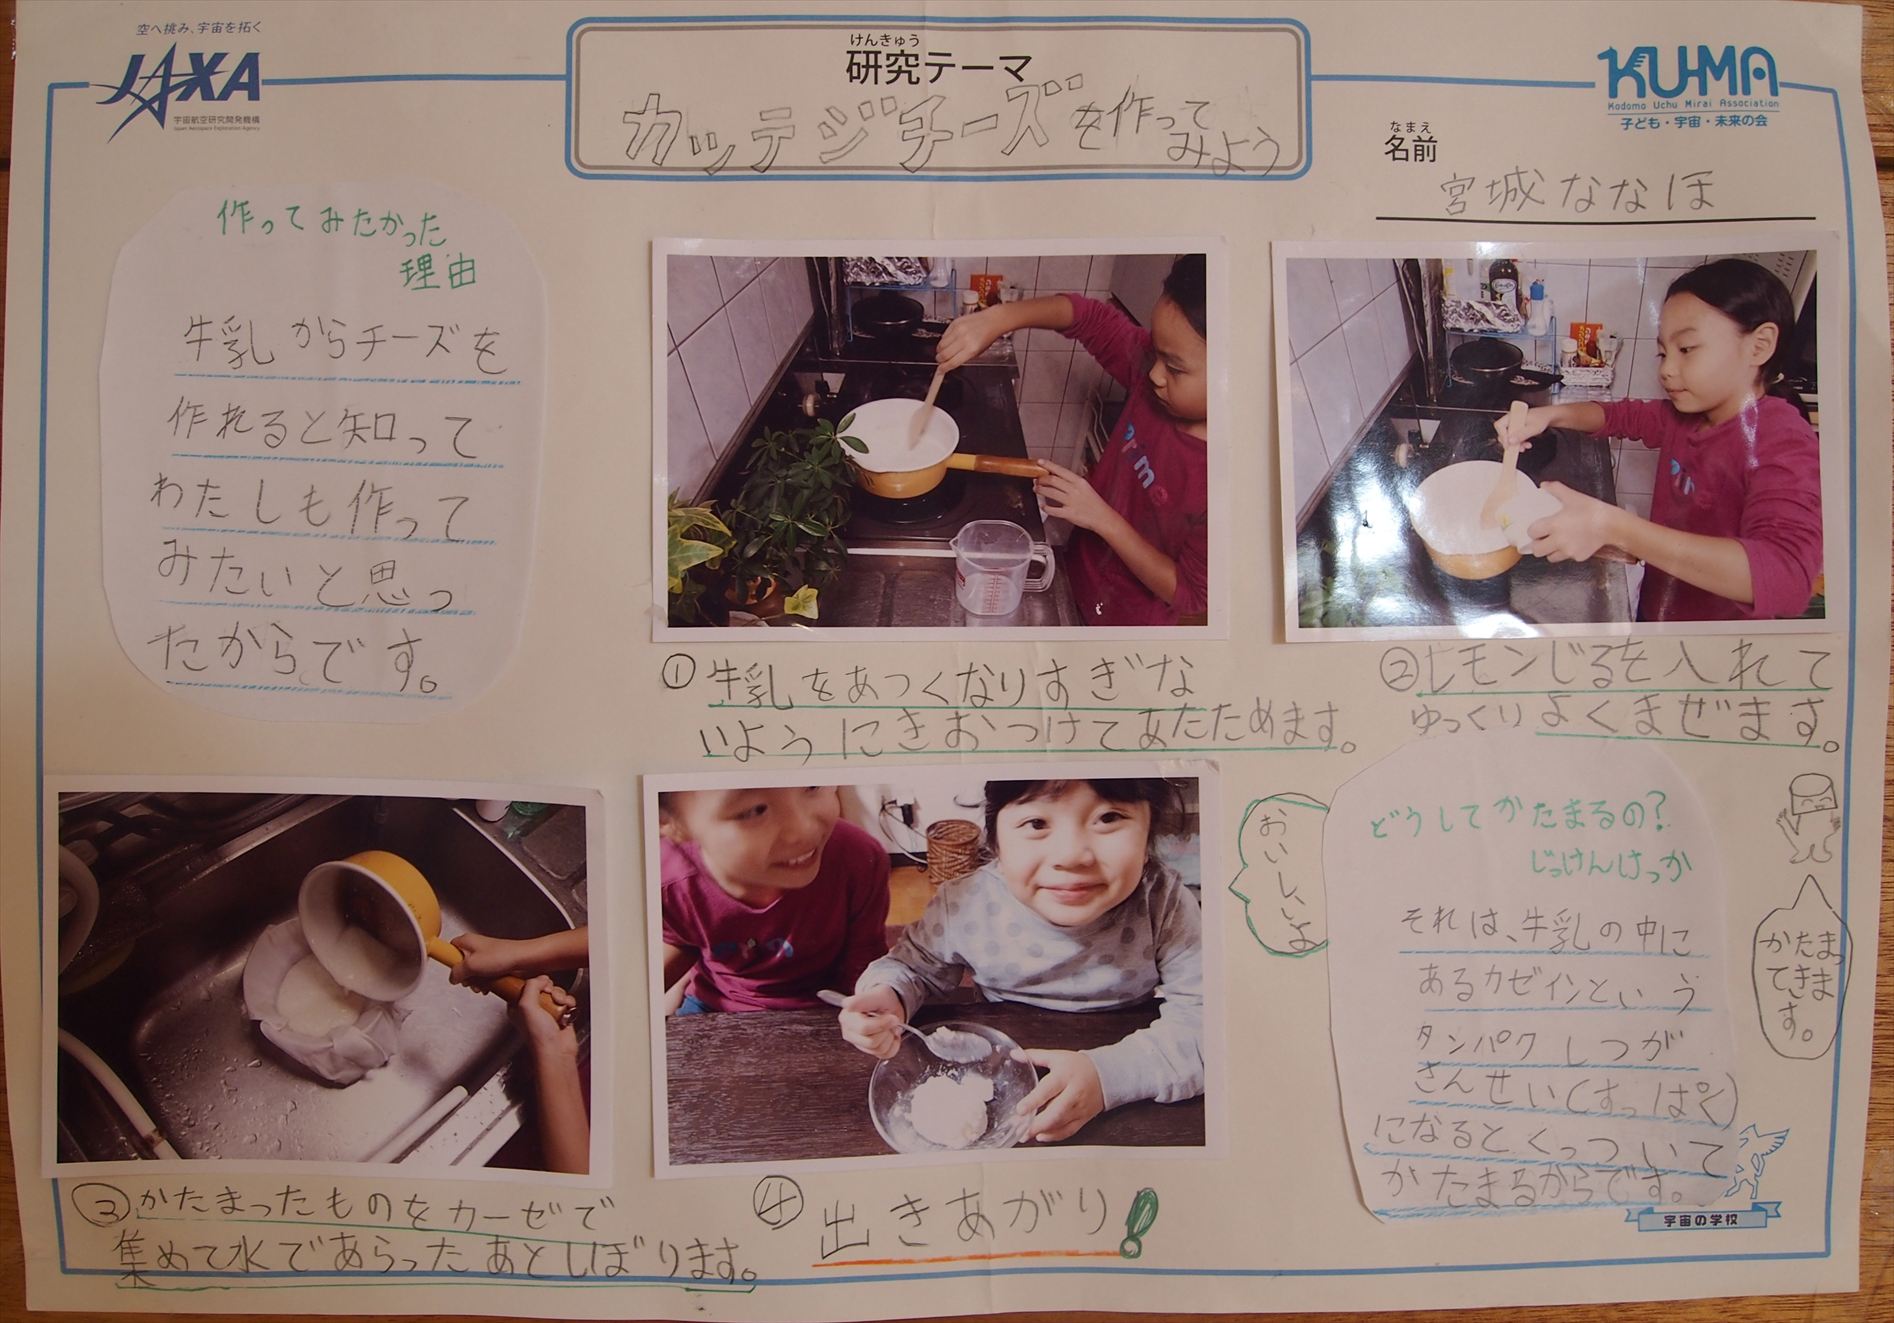 空へ挑み、宇宙を拓く
JAXA
宇宙航空研究開発機構
Japan Aerospace Exploration Agency
けんきゅう
研究テーマ
カッテジチーズを作って
みよう
KU-MA
Kodomo Uchu Mirai Association
子ども・宇宙・未来の会
なまえ
名前
宮城ななほ
作ってみたかった
理由
牛乳からチーズを
作れると知って
わたしも作って
みたいと思っ
たからです。
①牛乳をあつくなりすぎな
いようにきおつけてあたためます。
②レモンじるを入れて
ゆっくりよくまぜます。
③かたまったものをカーゼで
集めて水であらったあとしぼります。
④出きあがり!
おいしいよ
どうしてかたまるの?
じっけんけっか
それは、牛乳の中に
あるカゼインという
タンパクしつが
さんせい(すっぱく)
になるとくっついて
かたまるからです。
かたまっ
てきま
す。
宇宙の学校